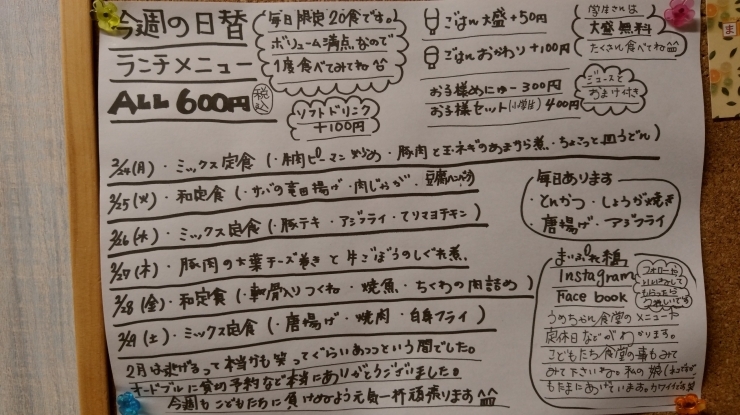 今週の日替
ランチメニュー
ALL 600円 税込
毎日限定20食です。
ボリューム満点なので
1度食べてみてね
ソフトドリンク
+100円
ごはん大盛+50円
ごはんおかわり+100円
お子様めにゅー300円
お子様セット(小学生)400円
学生さんは
大盛無料
たくさん食べてね^^
ジュースと
おまけ付き
ま
2/24(月)・ミックス定食(・牛肉ピーマン炒め・豚肉と玉ネギのあまから煮・ちょこっと皿うどん)
2/25(火)・和定食(・サバの竜田揚げ・肉じゃが・豆腐ハンバーグ)
2/26(水)・ミックス定食(・豚テキ・アジフライ・てりマヨチキン)
2/27(木)・豚肉の大葉チーズ巻きと牛ごぼうのしぐれ煮。
2/28(金)・和定食(・軟骨入りつくね・焼魚・ちくわの肉詰め)
2/29(土)・ミックス定食(・唐揚げ・焼肉・白身フライ)
毎日あります
・とんかつ・しょうが焼き
・唐揚げ・アジフライ
Instagram
Face book
フォローや
いいねして
もらったら
うれしいです
うめちゃん食堂のメニューや
定休日などがわかります。
こどもたち食堂の事もみて
みて下さいね。私の娘
もたまにあげています。カワイイ
2月は逃げるって本当かも笑ってぐらいあっっという間でした。
オードブルに貸切予約など本当にありがとうございました。
今週もこどもたちに負けぬよう元気一杯頑張ります^^